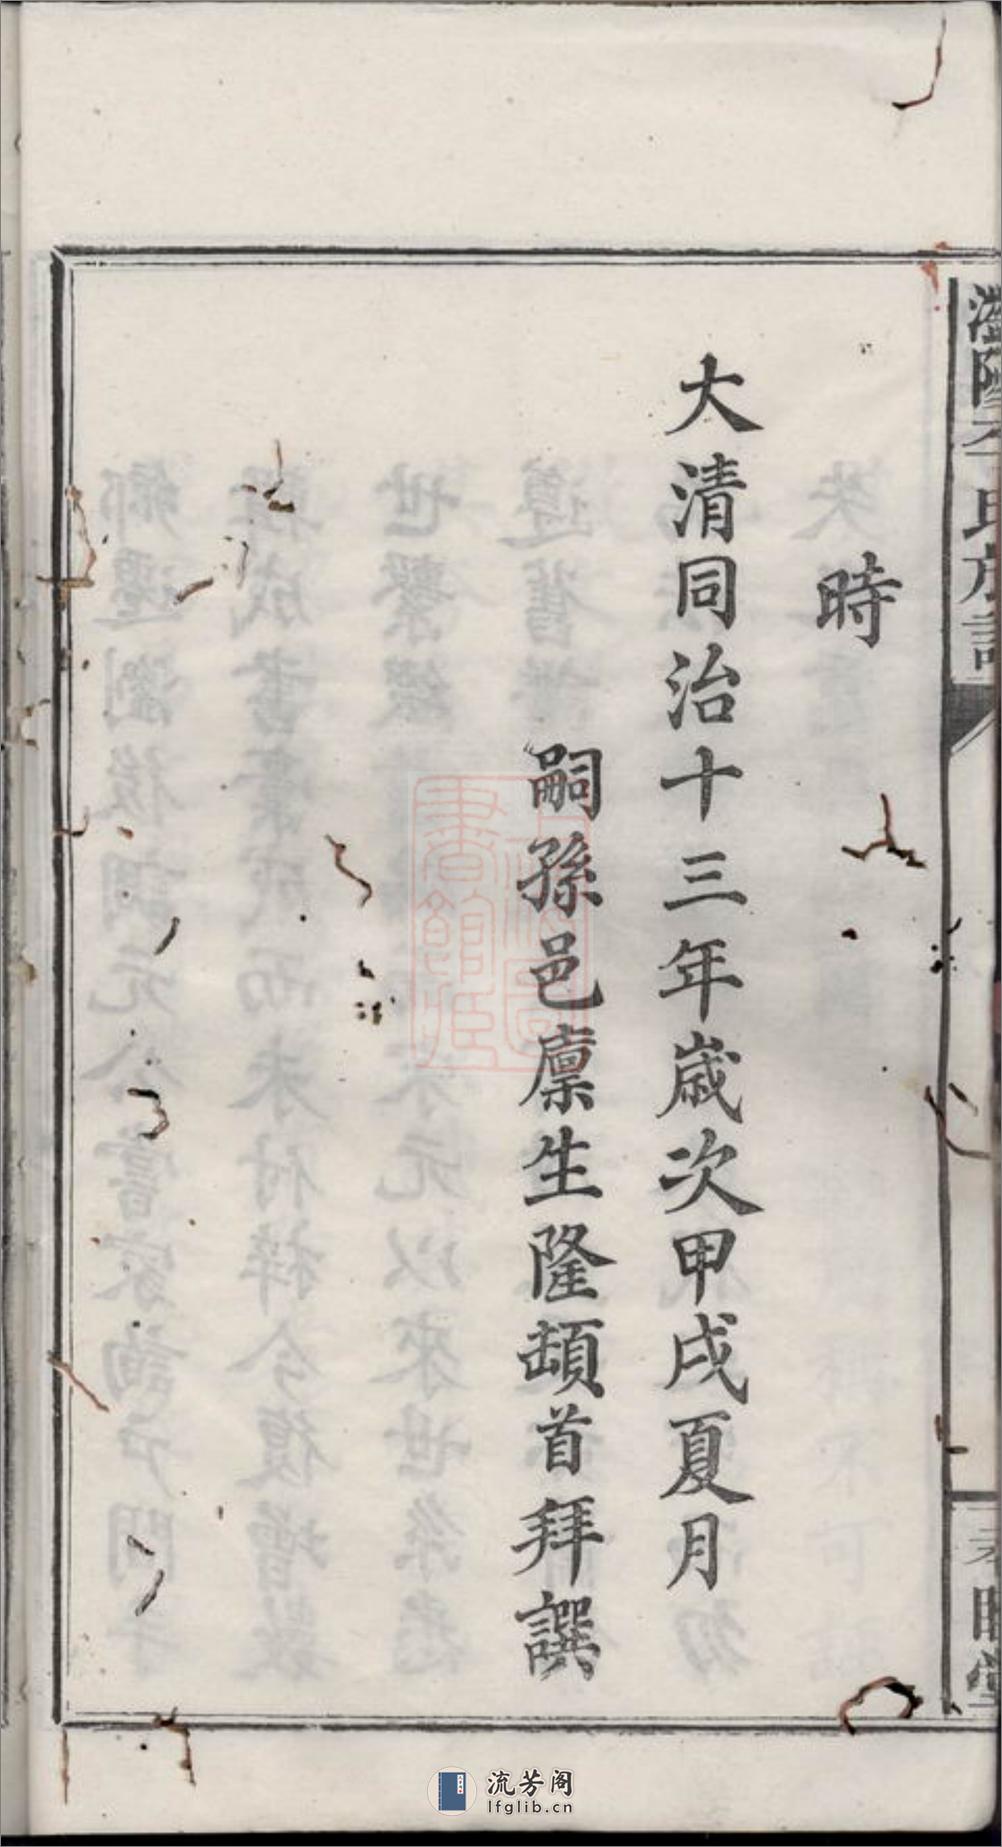 時
大清同治十三年歲次甲戌夏月
嗣孫邑廩生隆頔首拜譔
流芳阁
lfglib.cn